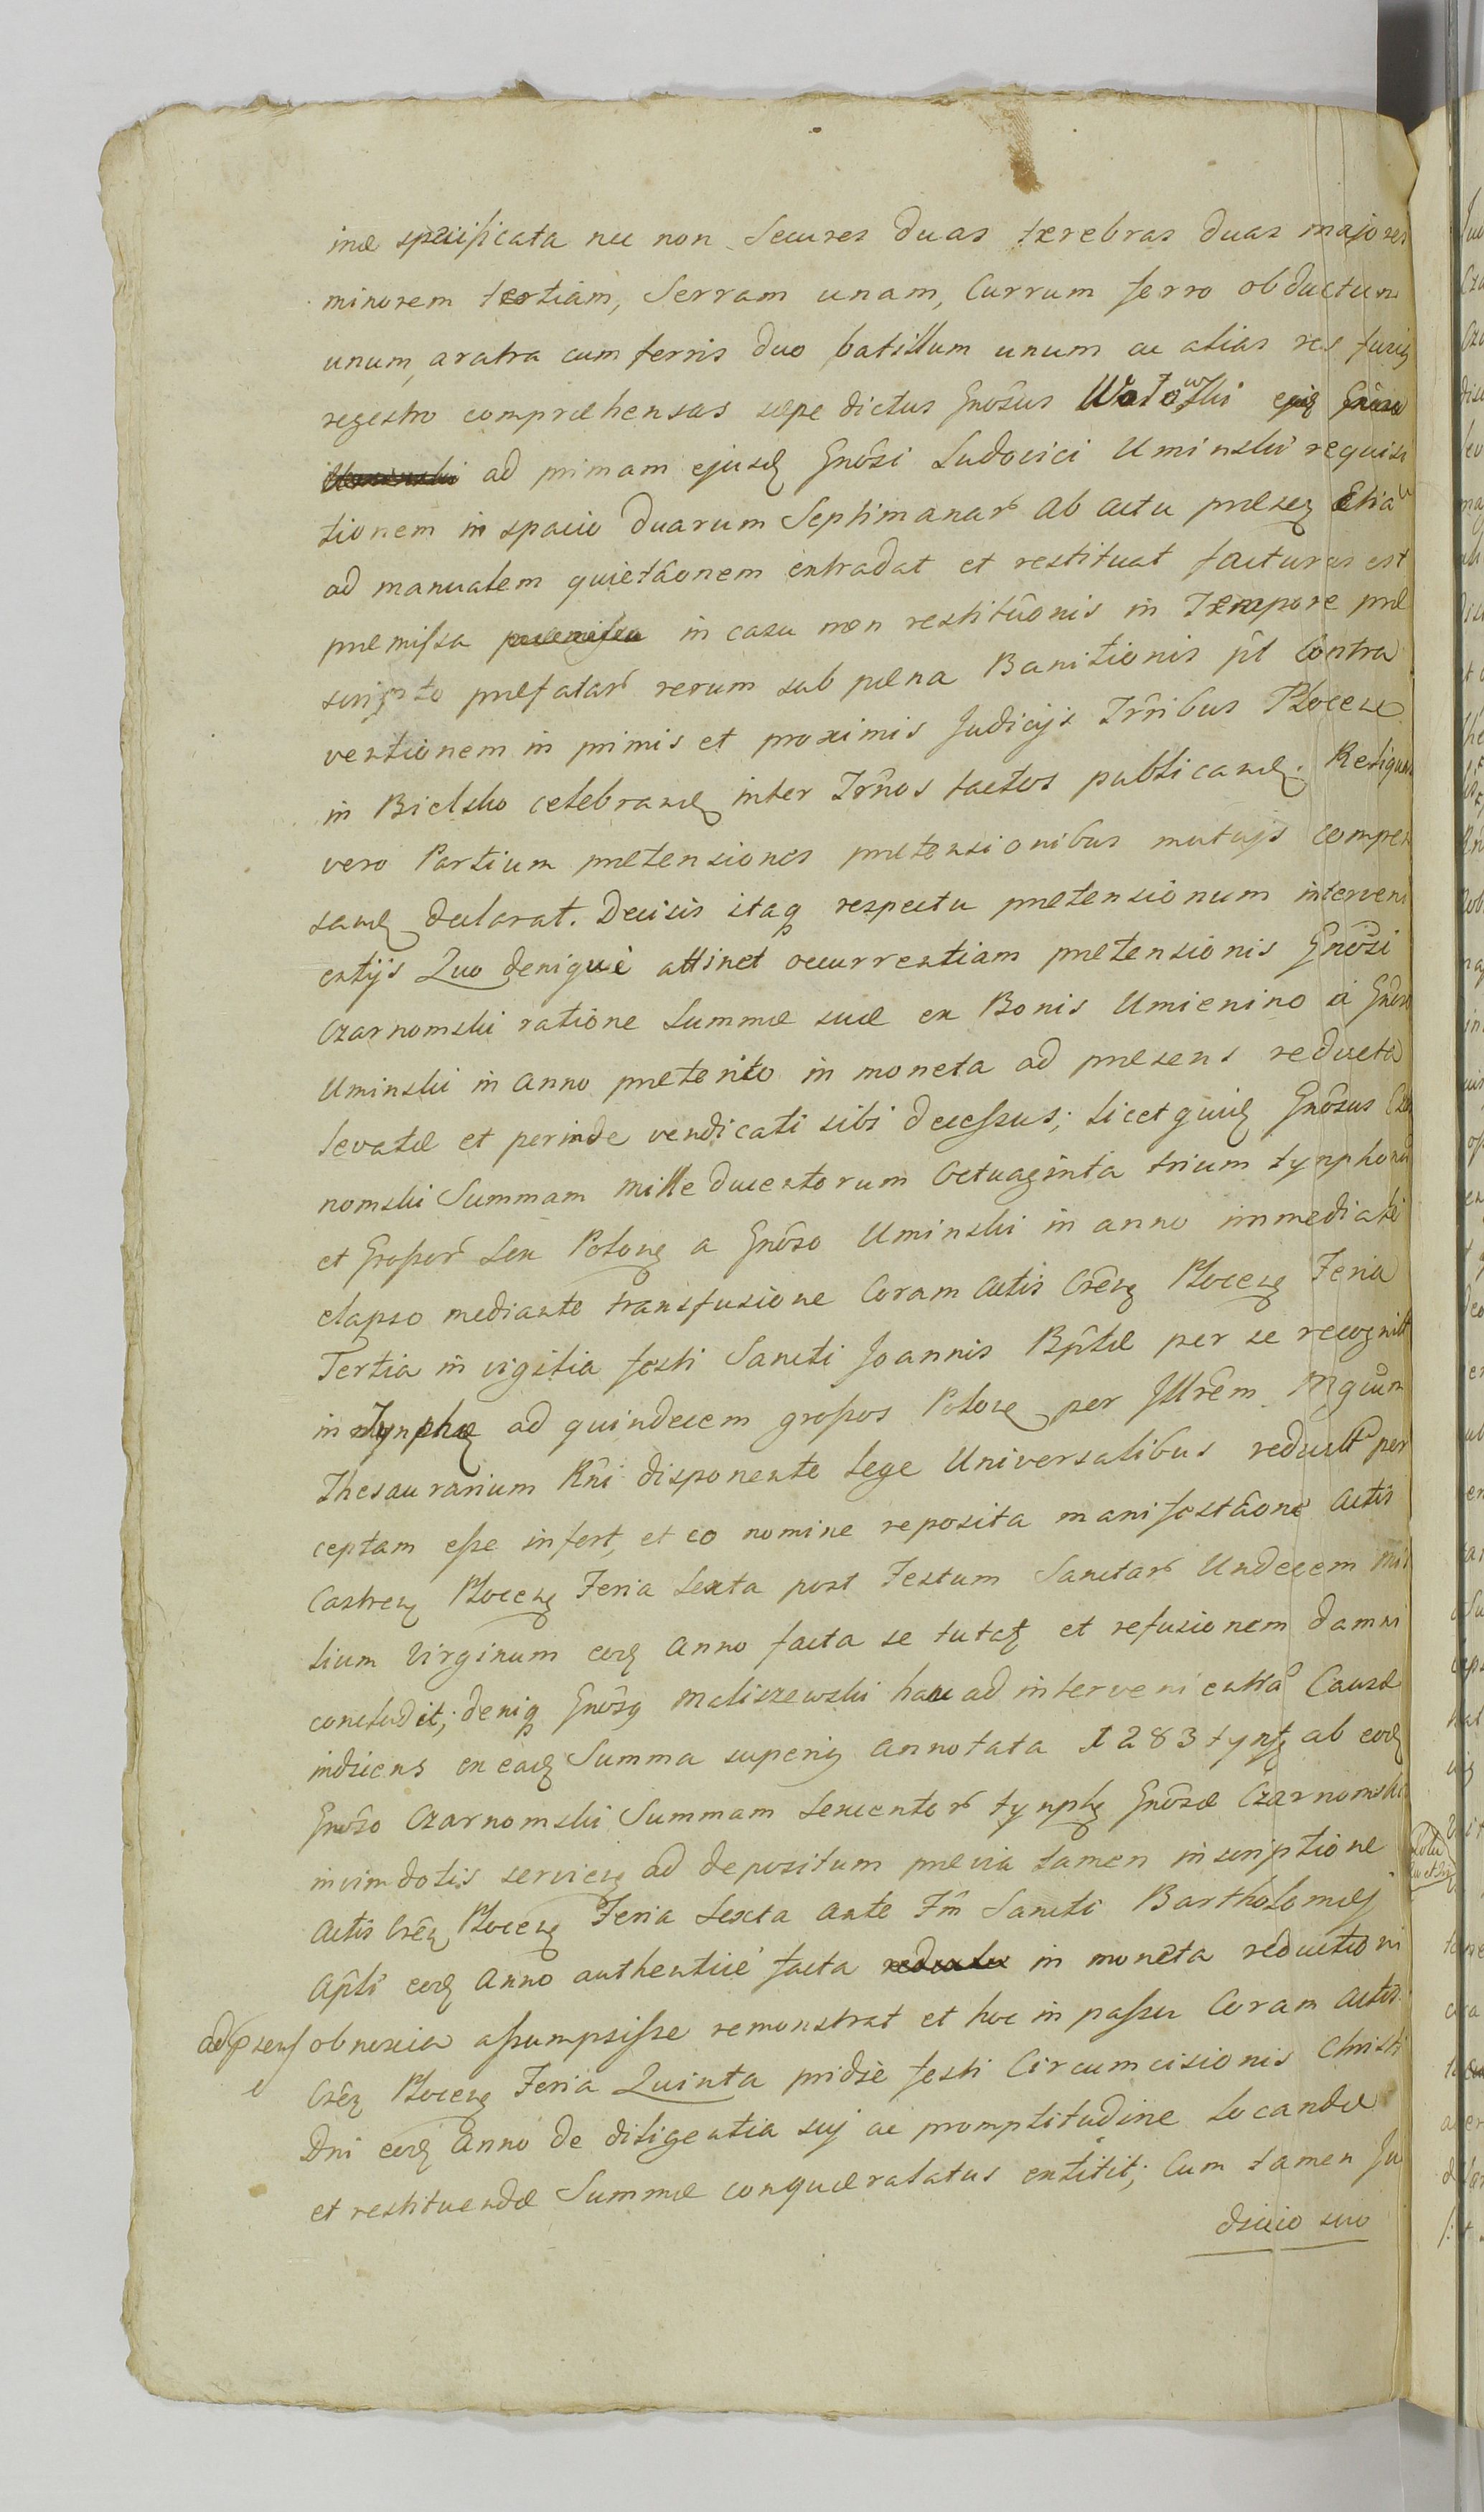 inæ specificata nec non Secures duas terebras duas majores
minorem tertiam, Serram unam, Currum ferro obductum
unum, aratra cum ferris duo batillum unum ac alias res
regestro compræhensas sæpe dictus Gnôsus Wotowski
ad primam ejusđ Gnôsi Ludovici Uminski requisi
tionem in spacio duarum Septimanar ab actu præseɳ
ad manualem quietâonem extradat et restituat facturus est
præmissa in casu non restitûonis in Tempore præ
scripto præfatar rerum sub pæna Banitionis pt Contra
ventionem in primis et proximis Judicijs Trribus Plocen
in Bielsko celebranđ inter Trnos factos publicanđ. Reliquas
vero Partium prætensiones prætensionibus mutuis compen
sanđ declarat. Decisis itaq respectu prætensionum interveni
entijs Quo deniquè attinet occurrentiam prætensionis Gnôsi
Czarnomski ratione Summæ suæ ex Bonis Umienino à Gnôso
Uminski in anno præterito in moneta ad præsens reducta
levatæ et perinde vendicati sibi decessus; licet quiđ Gnôsus Czar
nomski Summam mille ducentorum Octuaginta trium tynphonũ
et Grossor Sex Poloɳ a Gnôso Uminski in anno immediate
elapso mediante transfusione Coram Actis Crêɳ Ploceɳ Feria
Tertia in vigilia festi Sancti Joannis Bptæ per se recognit
in Tynphɳ ad quindecem grossos Poloɳ per Illrêm Mgcum
Thesaurarium Rni disponente lege Universalibus reduct per
ceptam esse infert, et eo nomine reposita manifestâone Actis
Castreɳ Ploceɳ Feria Sexta post Festum Sanctar Undecem Mil
lium Virginum eođ Anno facta se tutat et refusionem damni
concludit; deniq Gnôsɳ Maliszewski hac ad intervenientia Causæ
indicens ex eađ Summa superiɳ annotata 1283 tynf ab eođ
Gnôso Czarnomski Summam Sexcentor tynphɳ Gnôsæ Czarnomski
in vim dotis servieɳ ad depositum prævia tamen inscriptione
Actis Crêɳ Ploceɳ Feria Sexta ante Fm Sancti Bartholomæj
Apli eođ Anno authenticè facta in moneta reductioni
ad psens obnoxia assumpsisse remonstrat et hoc in passu Coram Actis
Crêɳ Ploceɳ Feria Quinta pridiè festi Circumcisionis Christi
Dni eođ Anno de diligentia suj ac promptitudine locandæ
et restituendæ Summæ conquæralatus extitit; Cum tamen Ju
dicio suo